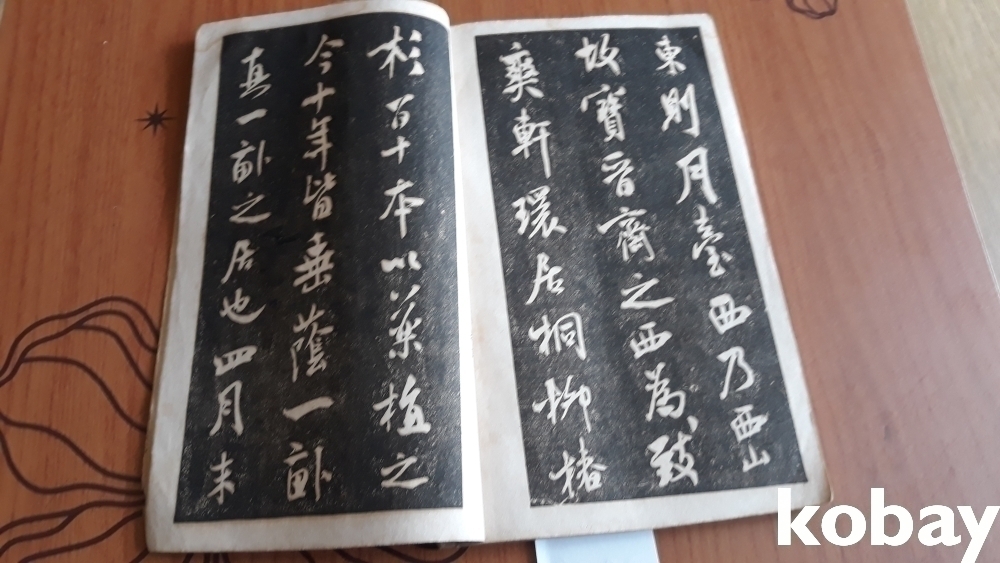 東則月臺西乃西山
故寶晉齋之西為致
爽軒環居桐柳椿
杉百十本以藥植之
今十年皆垂蔭一畝
真一畝之居也四月末
kobay